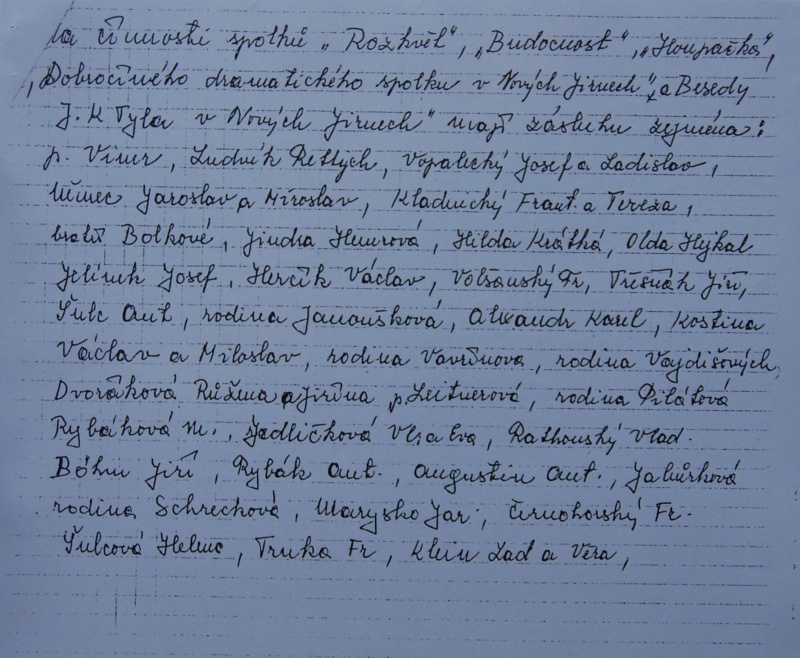 la činnosti spolků „Rozkvět", „Budocnost", „Houpačka",
„Dobročiného dramatického spolku v Nových Jirnech", a Besedy
J. K Tyla v Nových Jirnech" mají zásluhu zejména:
p. Vinr, Ludvík Rettych, Vopalický Josef a Ladislav,
Němec Jaroslav a Miroslav, Kladnický Frant. a Tereza,
bratři Bolkové, Jindra Humrová, Hilda Krátká, Olda Hýkal
Jelínek Josef, Herčík Václav, Volšanský Fr, Třešňák Jiří,
Šulc Ant, rodina Janoušková, Alexandr Karel, Kostina
Václav a Miloslav, rodina Vavřinova, rodina Vajdišových,
Dvořáková Růžena a Jiřina p. Leitnerová, rodina Pilátová
Rybáková M., Jedličková Vlasta, Rathouský Vlad.
Böhm Jiří, Rybák Ant., Augustin Ant., Jabůrková
rodina Schrechová, Marysko Jar., Černohorský Fr.
Šulcová Helena, Trnka Fr, Klein Lad a Věra,